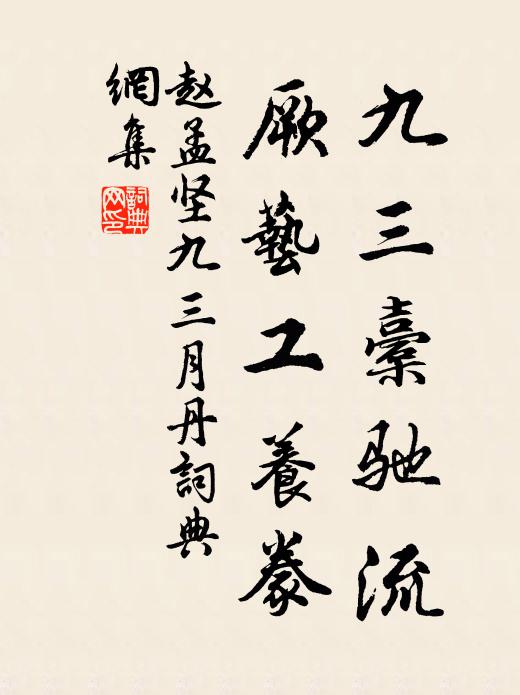 九三橐驰流
厥藝工養豢
赵孟坚九三月丹詞典
網集
詞典
网印